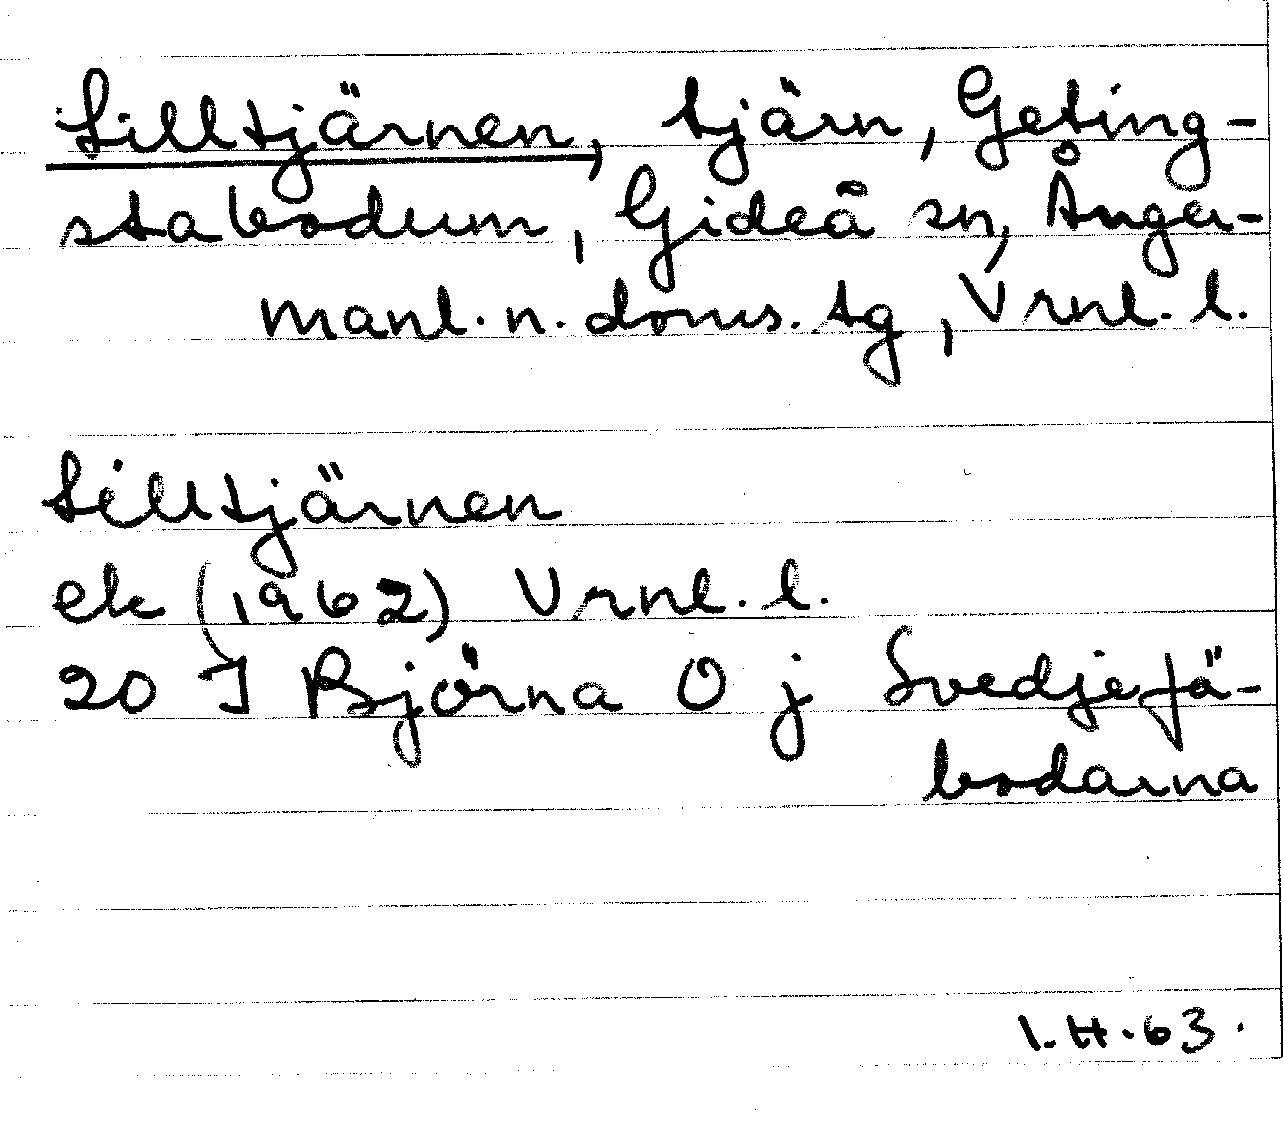 Silltjärnen, tjärn, Geting-
stabodum, Gideå sn, Ånger-
manl. n. doms. tg, Vrnl. l.
Silltjärnen
ek (1962) Vrnl. l.
20 J Björna O j Svedjefä-
bodarna
I.H.63.